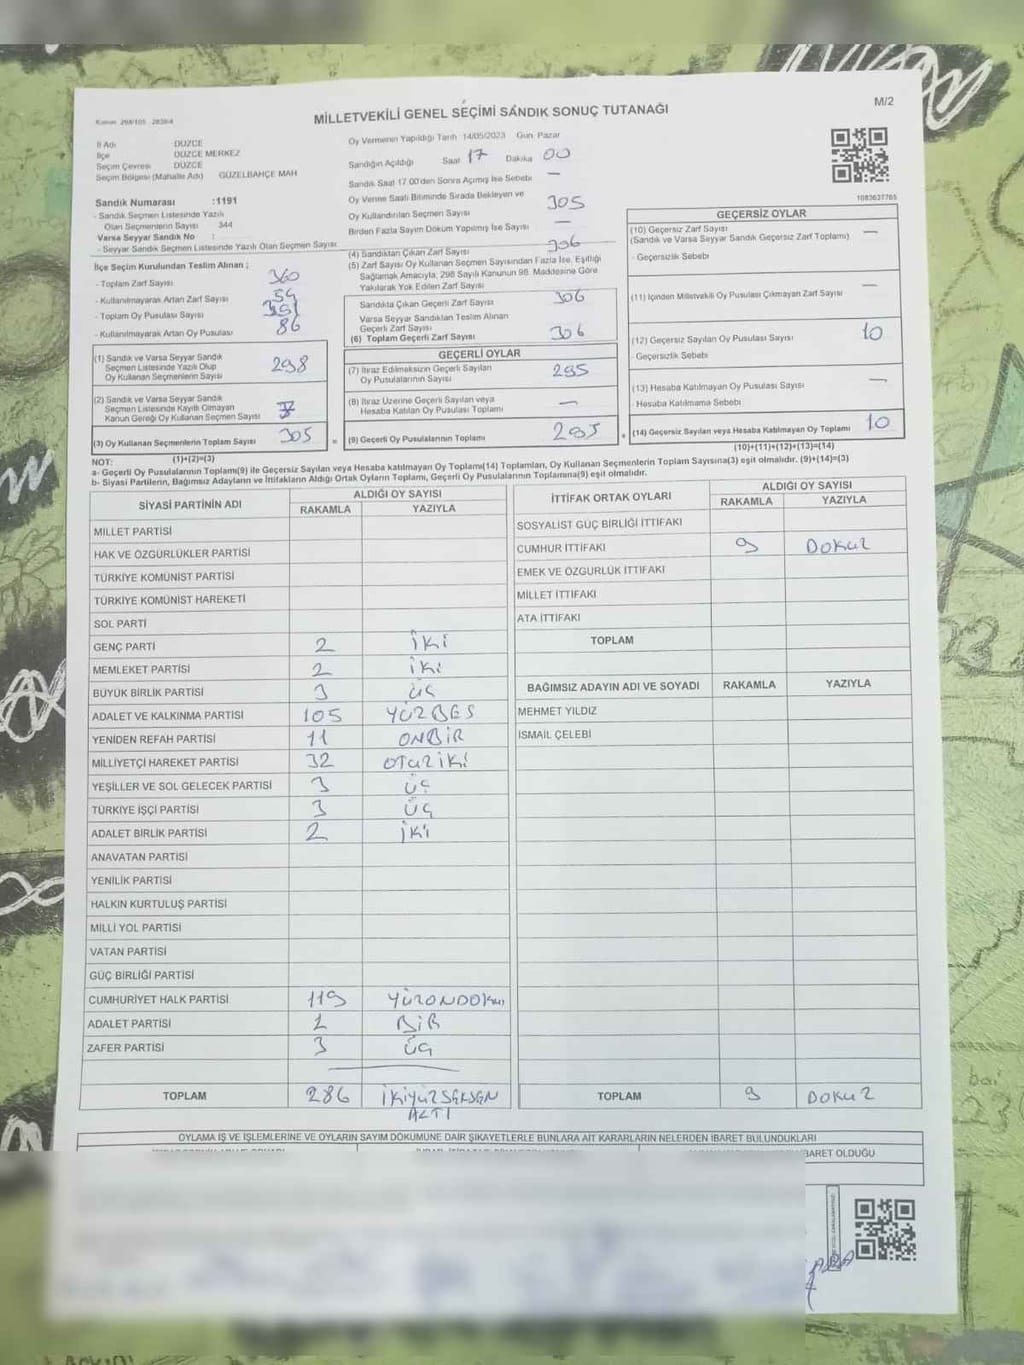 M/2
MİLLETVEKİLİ GENEL SEÇİMİ SANDIK SONUÇ TUTANAĞI
İl Adı DÜZCE
İlçe DÜZCE MERKEZ
Seçim Çevresi DÜZCE
Seçim Bölgesi (Mahalle Adı) GÜZELBAHÇE MAH
Sandık Numarası :1191
- Sandık Seçmen Listesinde Yazılı
Olan Seçmenlerin Sayısı 344
Varsa Seyyar Sandık No :
- Seyyar Sandık Seçmen Listesinde Yazılı Olan Seçmen Sayısı
İlçe Seçim Kurulundan Teslim Alınan ;
- Toplam Zarf Sayısı 360
- Kullanılmayarak Artan Zarf Sayısı 54
- Toplam Oy Pusulası Sayısı
- Kullanılmayarak Artan Oy Pusulası 86
(1) Sandık ve Varsa Seyyar Sandık
Seçmen Listesinde Yazılı Olup
Oy Kullanan Seçmenlerin Sayısı 298
(2) Sandık ve Varsa Seyyar Sandık
Seçmen Listesinde Kayıtlı Olmayan
Kanun Gereği Oy Kullanan Seçmen Sayısı 7
(3) Oy Kullanan Seçmenlerin Toplam Sayısı 305
(1)+(2)=(3)
Oy Vermenin Yapıldığı Tarih 14/05/2023 Gün Pazar
Sandığın Açıldığı Saat 17 Dakika 00
Sandık Saat 17.00'den Sonra Açılmış İse Sebebi —
Oy Verme Saati Bitiminde Sırada Bekleyen ve
Oy Kullandırılan Seçmen Sayısı 305
Birden Fazla Sayım Döküm Yapılmış İse Sayısı —
(4) Sandıktan Çıkan Zarf Sayısı 306
(5) Zarf Sayısı Oy Kullanan Seçmen Sayısından Fazla İse, Eşitliği
Sağlamak Amacıyla, 298 Sayılı Kanunun 98. Maddesine Göre
Yakılarak Yok Edilen Zarf Sayısı
Sandıkta Çıkan Geçerli Zarf Sayısı 306
Varsa Seyyar Sandıktan Teslim Alınan
Geçerli Zarf Sayısı
(6) Toplam Geçerli Zarf Sayısı 306
GEÇERLİ OYLAR
(7) İtiraz Edilmeksizin Geçerli Sayılan
Oy Pusulalarının Sayısı 295
(8) İtiraz Üzerine Geçerli Sayılan veya
Hesaba Katılan Oy Pusulası Toplamı —
= (9) Geçerli Oy Pusulalarının Toplamı 295 +
1083637765
GEÇERSİZ OYLAR
(10) Geçersiz Zarf Sayısı
(Sandık ve Varsa Seyyar Sandık Geçersiz Zarf Toplamı) —
- Geçersizlik Sebebi
(11) İçinden Milletvekili Oy Pusulası Çıkmayan Zarf Sayısı —
(12) Geçersiz Sayılan Oy Pusulası Sayısı 10
- Geçersizlik Sebebi
(13) Hesaba Katılmayan Oy Pusulası Sayısı —
- Hesaba Katılmama Sebebi
(14) Geçersiz Sayılan veya Hesaba Katılmayan Oy Toplamı 10
(10)+(11)+(12)+(13)=(14)
NOT:
a- Geçerli Oy Pusulalarının Toplamı(9) ile Geçersiz Sayılan veya Hesaba katılmayan Oy Toplamı(14) Toplamları, Oy Kullanan Seçmenlerin Toplam Sayısına(3) eşit olmalıdır. (9)+(14)=(3)
b- Siyasi Partilerin, Bağımsız Adayların ve İttifakların Aldığı Ortak Oyların Toplamı, Geçerli Oy Pusulalarının Toplamına(9) eşit olmalıdır.
SİYASİ PARTİNİN ADI ALDIĞI OY SAYISI
RAKAMLA YAZIYLA
MİLLET PARTİSİ
HAK VE ÖZGÜRLÜKLER PARTİSİ
TÜRKİYE KOMÜNİST PARTİSİ
TÜRKİYE KOMÜNİST HAREKETİ
SOL PARTİ
GENÇ PARTİ 2 İKİ
MEMLEKET PARTİSİ 2 İKİ
BÜYÜK BİRLİK PARTİSİ 3 ÜÇ
ADALET VE KALKINMA PARTİSİ 105 YÜZBEŞ
YENİDEN REFAH PARTİSİ 11 ONBİR
MİLLİYETÇİ HAREKET PARTİSİ 32 OTUZİKİ
YEŞİLLER VE SOL GELECEK PARTİSİ 3 ÜÇ
TÜRKİYE İŞÇİ PARTİSİ 3 ÜÇ
ADALET BİRLİK PARTİSİ 2 İKİ
ANAVATAN PARTİSİ
YENİLİK PARTİSİ
HALKIN KURTULUŞ PARTİSİ
MİLLİ YOL PARTİSİ
VATAN PARTİSİ
GÜÇ BİRLİĞİ PARTİSİ
CUMHURİYET HALK PARTİSİ 119 YÜZONDOKUZ
ADALET PARTİSİ 1 BİR
ZAFER PARTİSİ 3 ÜÇ
TOPLAM 286 İKİYÜZSEKSEN
ALTI
İTTİFAK ORTAK OYLARI ALDIĞI OY SAYISI
RAKAMLA YAZIYLA
SOSYALİST GÜÇ BİRLİĞİ İTTİFAKI
CUMHUR İTTİFAKI 9 DOKUZ
EMEK VE ÖZGÜRLÜK İTTİFAKI
MİLLET İTTİFAKI
ATA İTTİFAKI
TOPLAM
BAĞIMSIZ ADAYIN ADI VE SOYADI RAKAMLA YAZIYLA
MEHMET YILDIZ
İSMAİL ÇELEBİ
TOPLAM 9 DOKUZ
OYLAMA İŞ VE İŞLEMLERİNE VE OYLARIN SAYIM DÖKÜMÜNE DAİR ŞİKAYETLERLE BUNLARA AİT KARARLARIN NELERDEN İBARET BULUNDUKLARI
BARET OLDUĞU